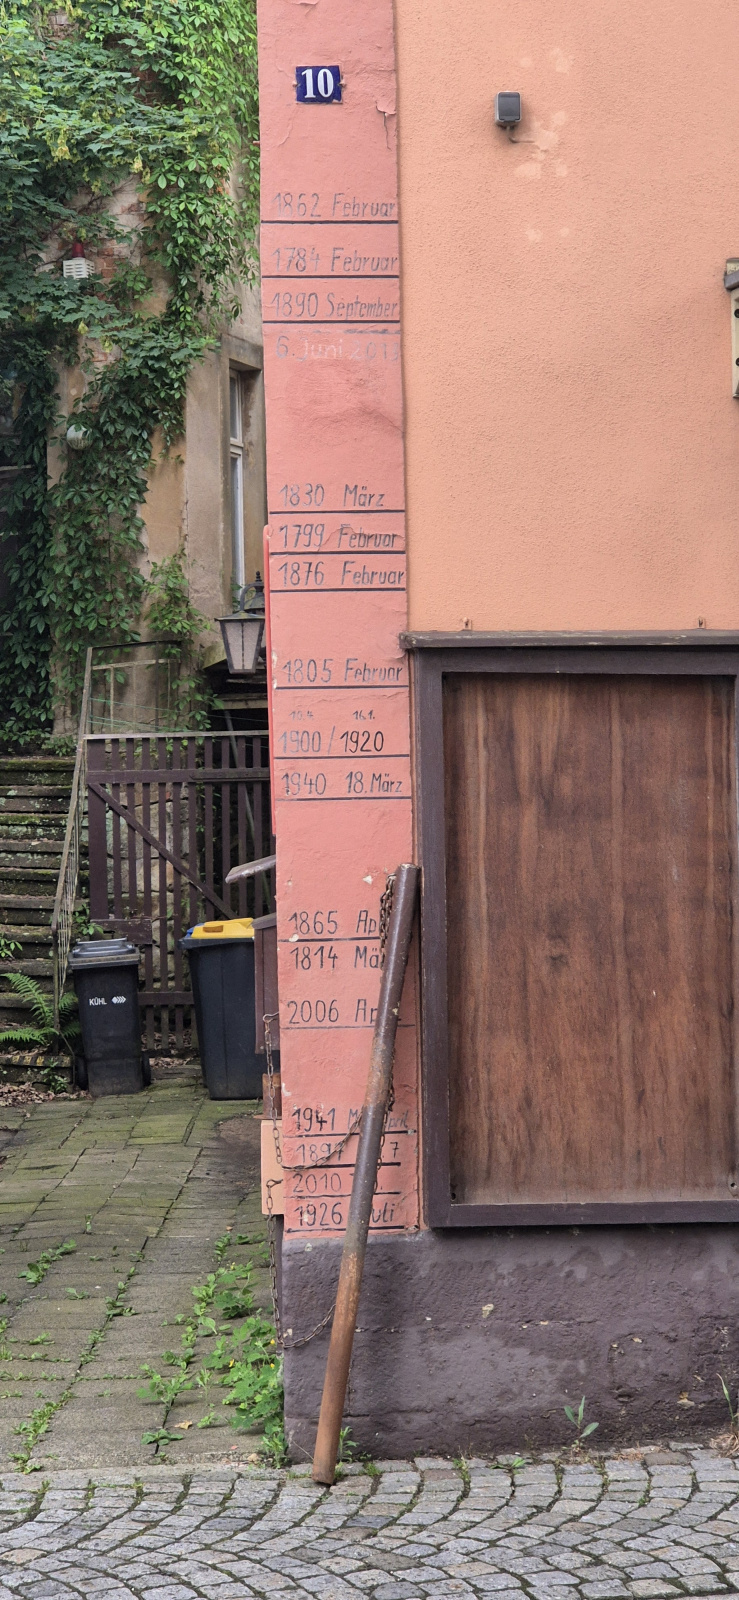 10
1862 Februar
1784 Februar
1890 September
6. Juni 2013
1830 März
1799 Februar
1876 Februar
1805 Februar
16.1.
1900/1920
1940 18. März
1865 Ap
1814 Mä
2006 Ap
1941
189 7
2010
1926 uli
KÜHL